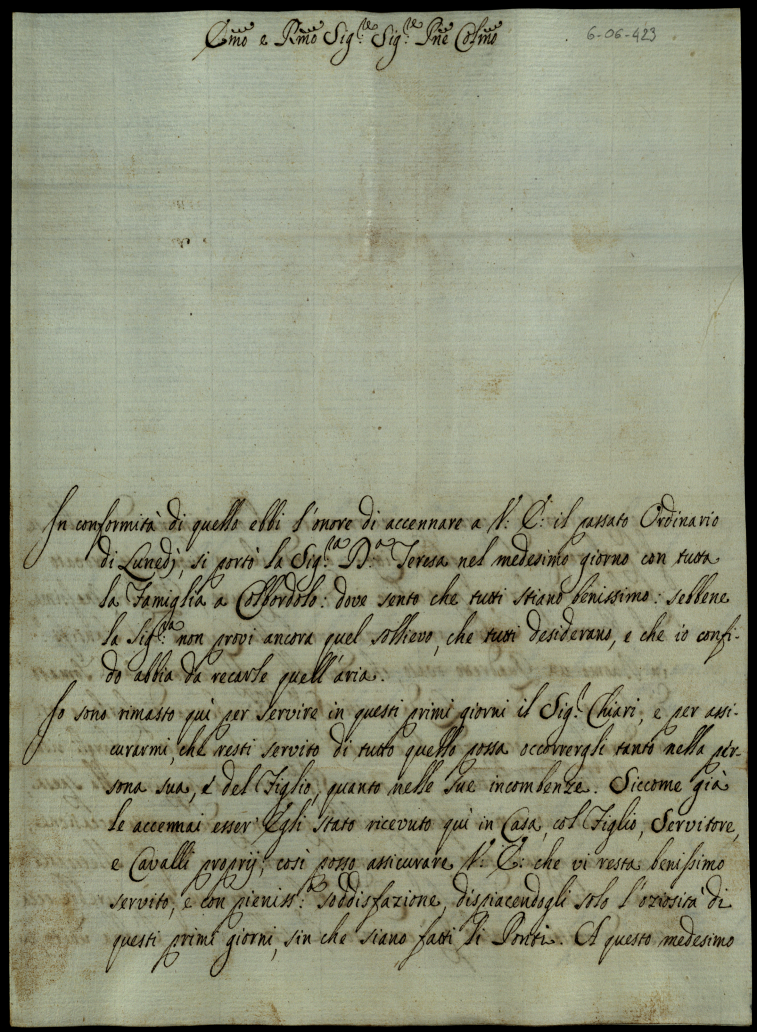 Emo e Rmo Sig.re Sig.re Pne Colmo
6-06-423
In conformità di quello ebbi l'onore di accennare a V: E: il passato Ordinario
di Lunedj, si portò la Sig.ra D.a Teresa nel medesimo giorno con tutta
la Famiglia a Colbordolo: dove sento che tutti stiano benissimo: sebbene
la Sig.ra non provi ancora quel sollievo, che tutti desiderano, e che io confi-
do abbia da recarle quell'aria.
Io sono rimasto quì per servire in questi primi giorni il Sig.r Chiari, e per assi-
curarmi, che resti servito di tutto quello possa occorrergli tanto nella per-
sona sua, e del Figlio, quanto nelle sue incombenze. Siccome già
le accennai esser Egli stato ricevuto quì in Casa, col Figlio, Servitore,
e Cavalli proprij, così posso assicurare V: E: che vi resta benissimo
servito, e con pieniss.a soddisfazione, dispiacendogli solo l'oziosità di
questi primi giorni, sin che siano fatti li Ponti. A questo medesimo